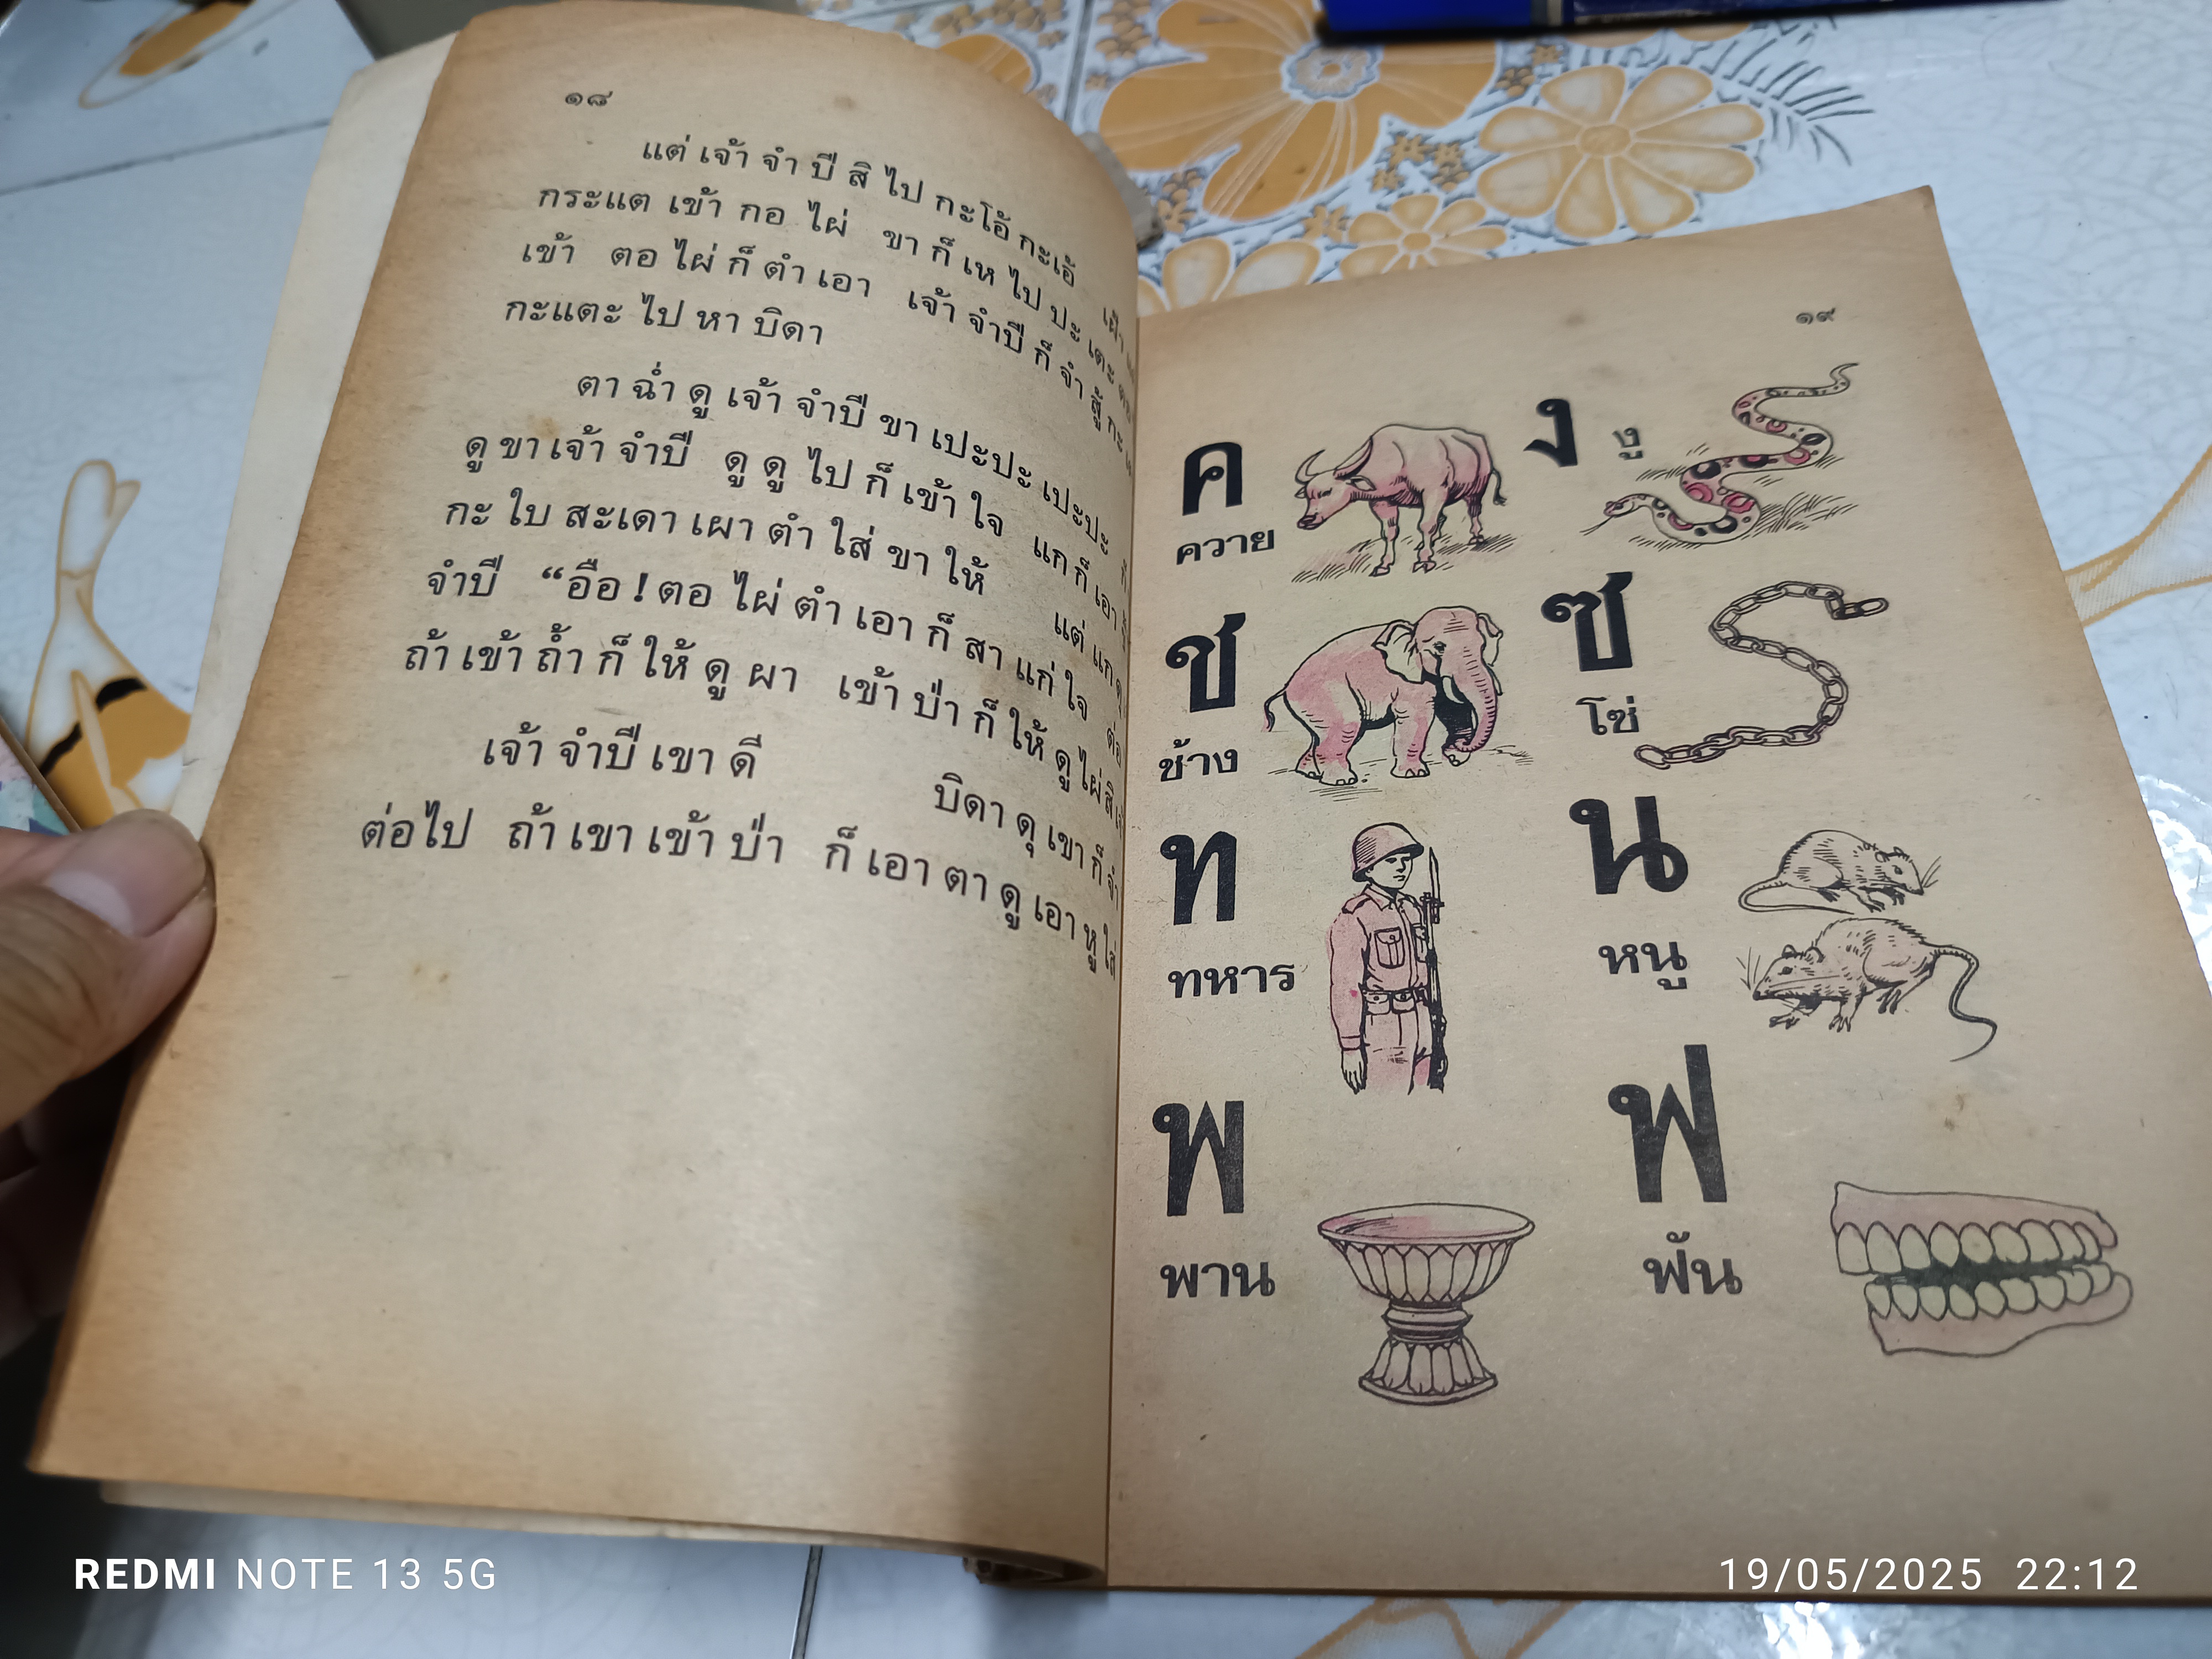 ๑๘
แต่ เจ้า จำ ปี สิ ไป กะโอ้ กะเอ้
กระแต เข้า กอ ไผ่ ขา ก็ เห ไป ปะ เตะ ตอ
เข้า ตอ ไผ่ ก็ ตำ เอา เจ้า จำปี ก็ จำ สู้ กะ
กะแตะ ไป หา บิดา
ตา ฉ่ำ ดู เจ้า จำปี ขา เปะปะ เปะปะ ก็
ดู ขา เจ้า จำปี ดู ดู ไป ก็ เข้า ใจ แก ก็ เอา
กะ ใบ สะเดา เผา ตำ ใส่ ขา ให้ แต่ แก ดุ
จำปี “อือ ! ตอ ไผ่ ตำ เอา ก็ สา แก่ ใจ ต่อ
ถ้า เข้า ถ้ำ ก็ ให้ ดู ผา เข้า ป่า ก็ ให้ ดู ไผ่
เจ้า จำปี เขา ดี บิดา ดุ เขา ก็ จำ
ต่อไป ถ้า เขา เข้า ป่า ก็ เอา ตา ดู เอา หู ใส่
๑๙
ค ง งู
ควาย
ช ซ
ช้าง โซ่
ท น
ทหาร หนู
พ ฟ
พาน ฟัน
REDMI NOTE 13 5G 19/05/2025 22:12